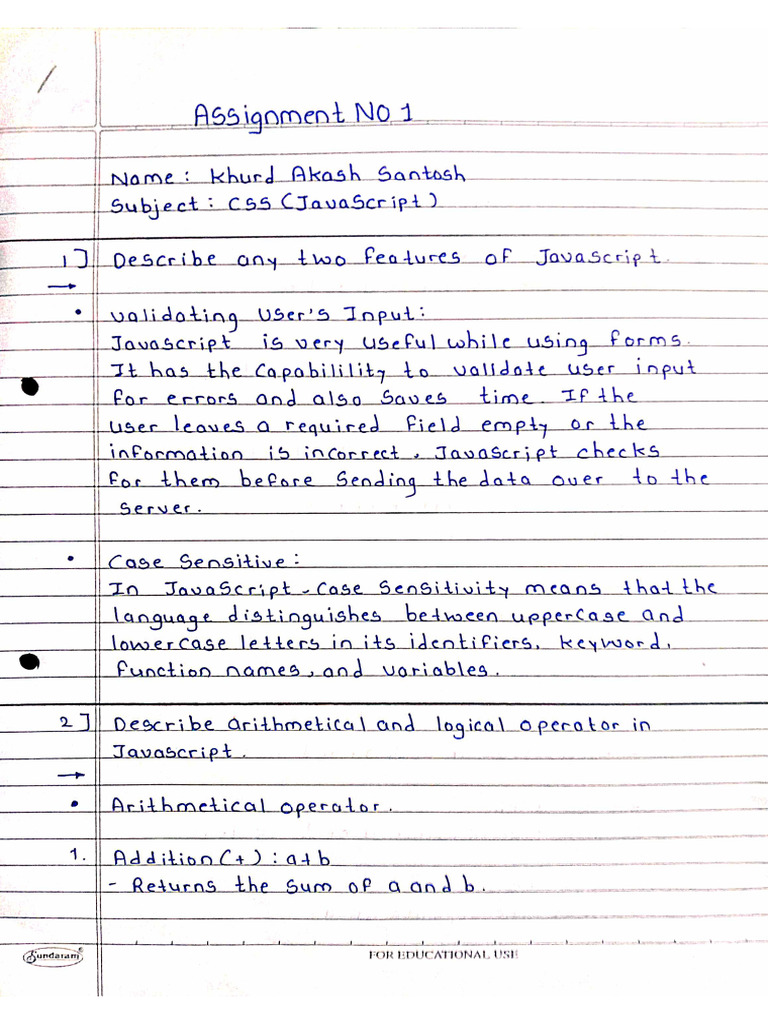 Assignment NO 1
Name : Khurd Akash Santosh
Subject : CSS (JavaScript)
1] Describe any two features of Javascript.
→
• Validating User's Input :
Javascript is very useful while using forms.
It has the Capabilility to validate user input
for errors and also saves time. If the
user leaves a required field empty or the
information is incorrect, JavaScript checks
for them before sending the data over to the
server.
• Case Sensitive :
In JavaScript, case sensitivity means that the
language distinguishes between uppercase and
lowercase letters in its identifiers, keyword,
function names, and variables.
2] Describe arithmetical and logical operator in
Javascript.
→
• Arithmetical operator.
1. Addition (+) : a+b
- Returns the sum of a and b.
Sundaram
FOR EDUCATIONAL USE